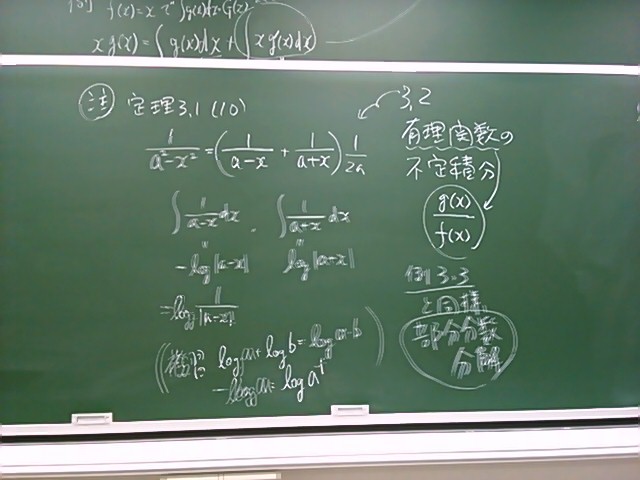 f(x)=x で ∫g(x)dx=G(x)
x g(x) = ∫g(x)dx + ∫x g'(x)dx
注 定理3.1(10)
1/(a²-x²) = (1/(a-x) + 1/(a+x)) 1/2a
∫1/(a-x) dx . ∫1/(a+x) dx
" "
-log|a-x| log|a+x|
=log 1/|a-x|
log a + log b = log a·b
-log a = log a⁻¹
3,2
有理関数の
不定積分
g(x)/f(x)
例3.3
と同様
部分分数
分解